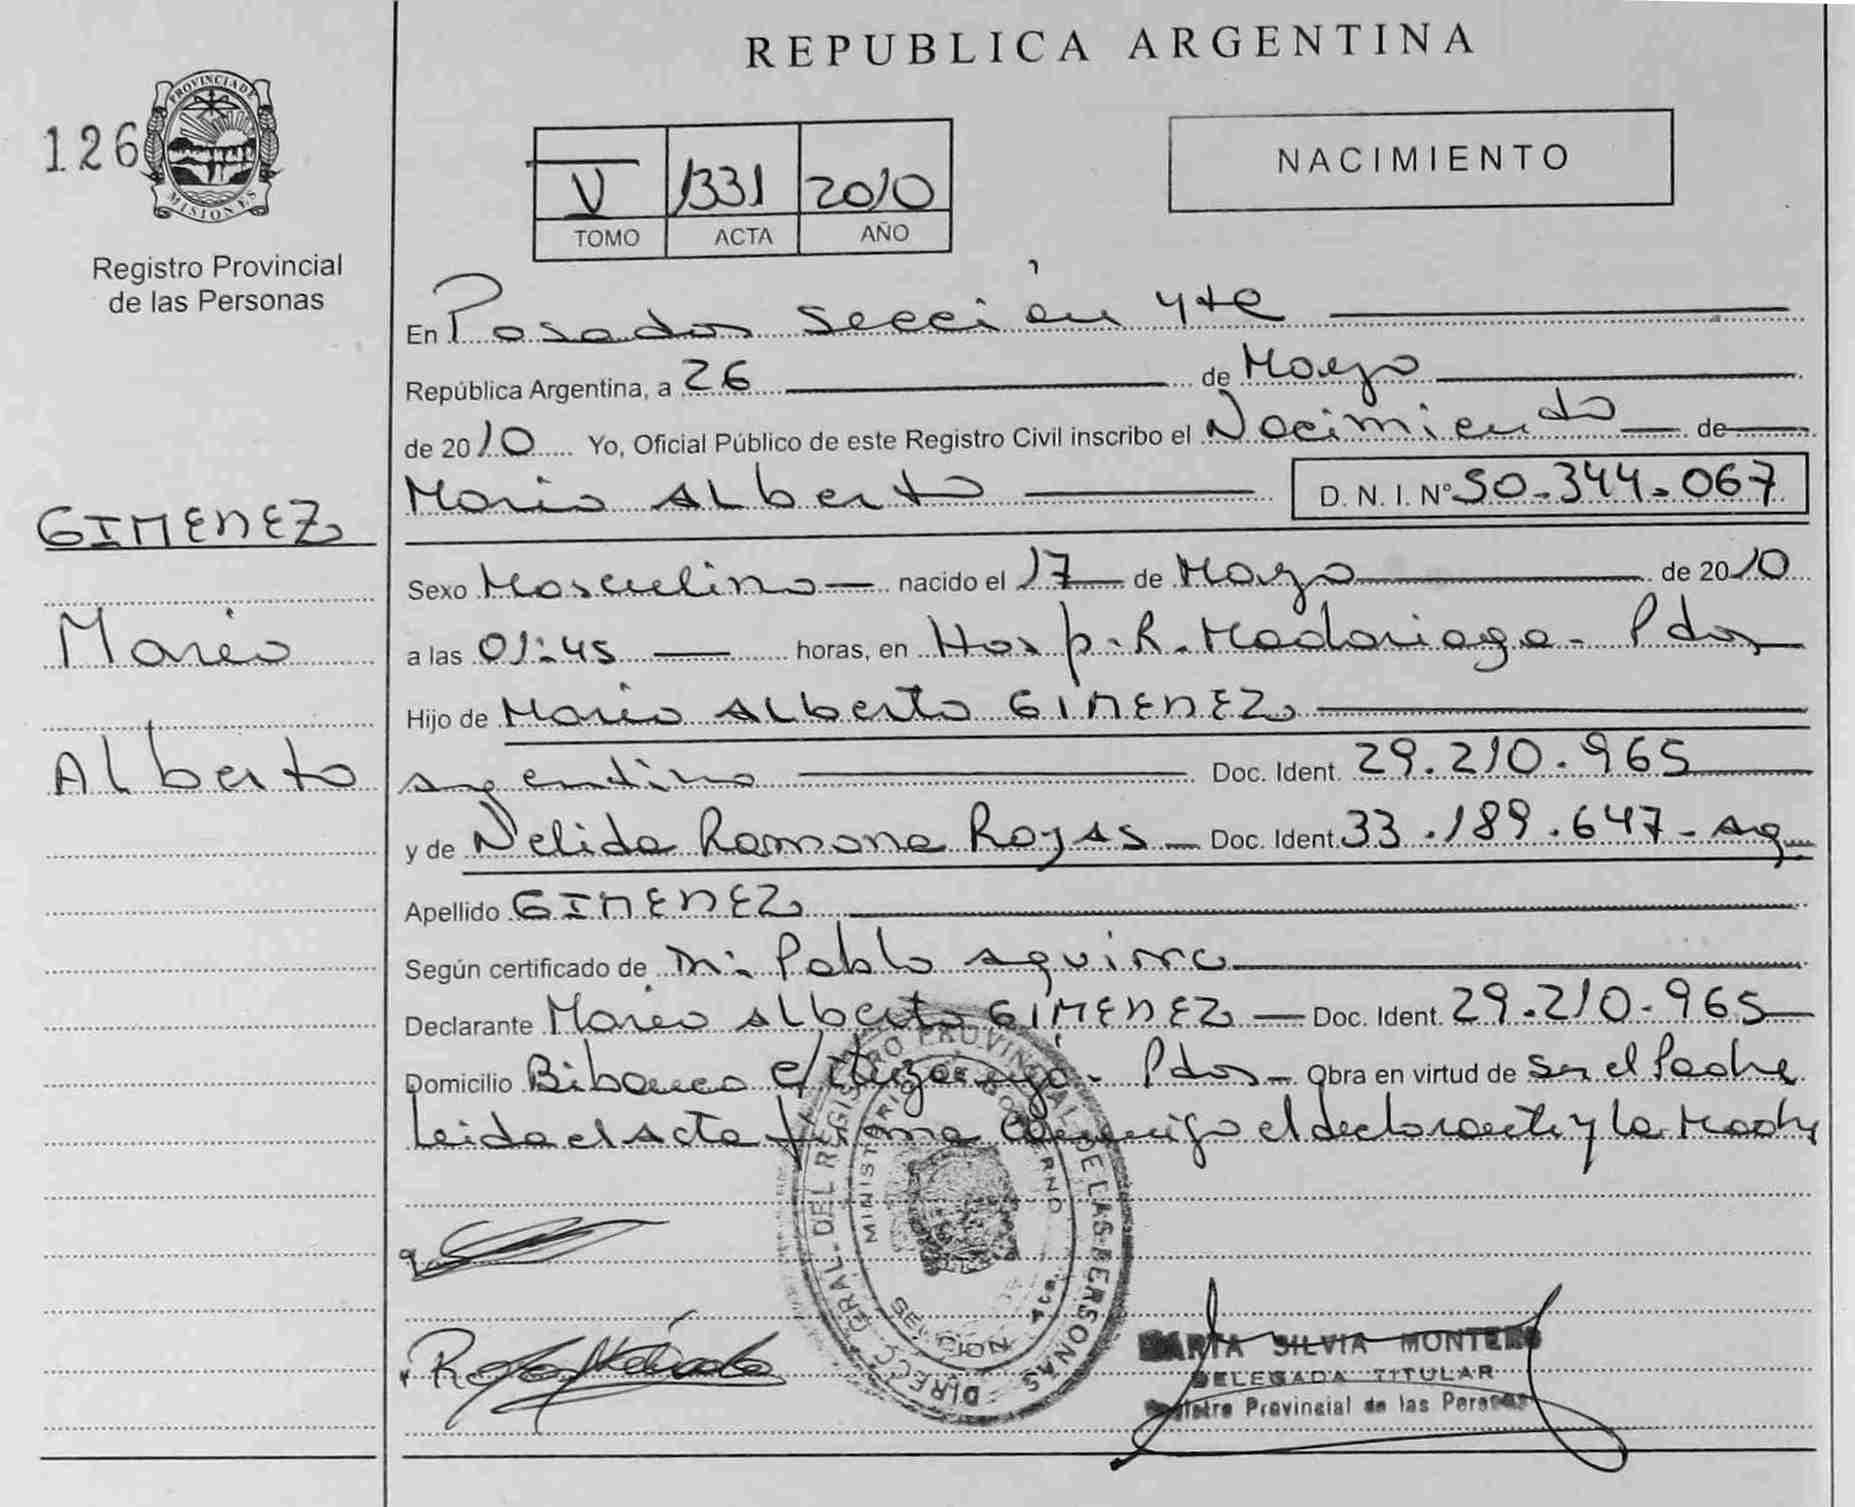 REPUBLICA ARGENTINA
126
PROVINCIA DE
MISIONES
Registro Provincial
de las Personas
V 1331 2010
TOMO ACTA AÑO
NACIMIENTO
En Posadas sección 4te
República Argentina, a 26 de Mayo
de 2010 Yo, Oficial Público de este Registro Civil inscribo el Nacimiento de
Mario Alberto D. N. I. Nº 50.344.067
GIMENEZ
Mario
Alberto
Sexo Masculino nacido el 17 de Mayo de 2010
a las 01:45 horas, en Hosp. R. Madariaga - Pdas
Hijo de Mario Alberto GIMENEZ
argentino Doc. Ident. 29.210.965
y de Nelida Ramona Rojas Doc. Ident. 33.189.647 - arg
Apellido GIMENEZ
Según certificado de Pablo Aguirre
Declarante Mario Alberto GIMENEZ Doc. Ident. 29.210.965
Domicilio c/ Pdas - Obra en virtud de ser el Padre
Leida el acta firma conmigo el declarante y la Madre
DIRECC. GRAL. DEL REGISTRO PROVINCIAL DE LAS PERSONAS
MINISTERIO DE GOBIERNO
SECCION 4ta.
MARTA SILVIA MONTERO
DELEGADA TITULAR
Registro Provincial de las Personas